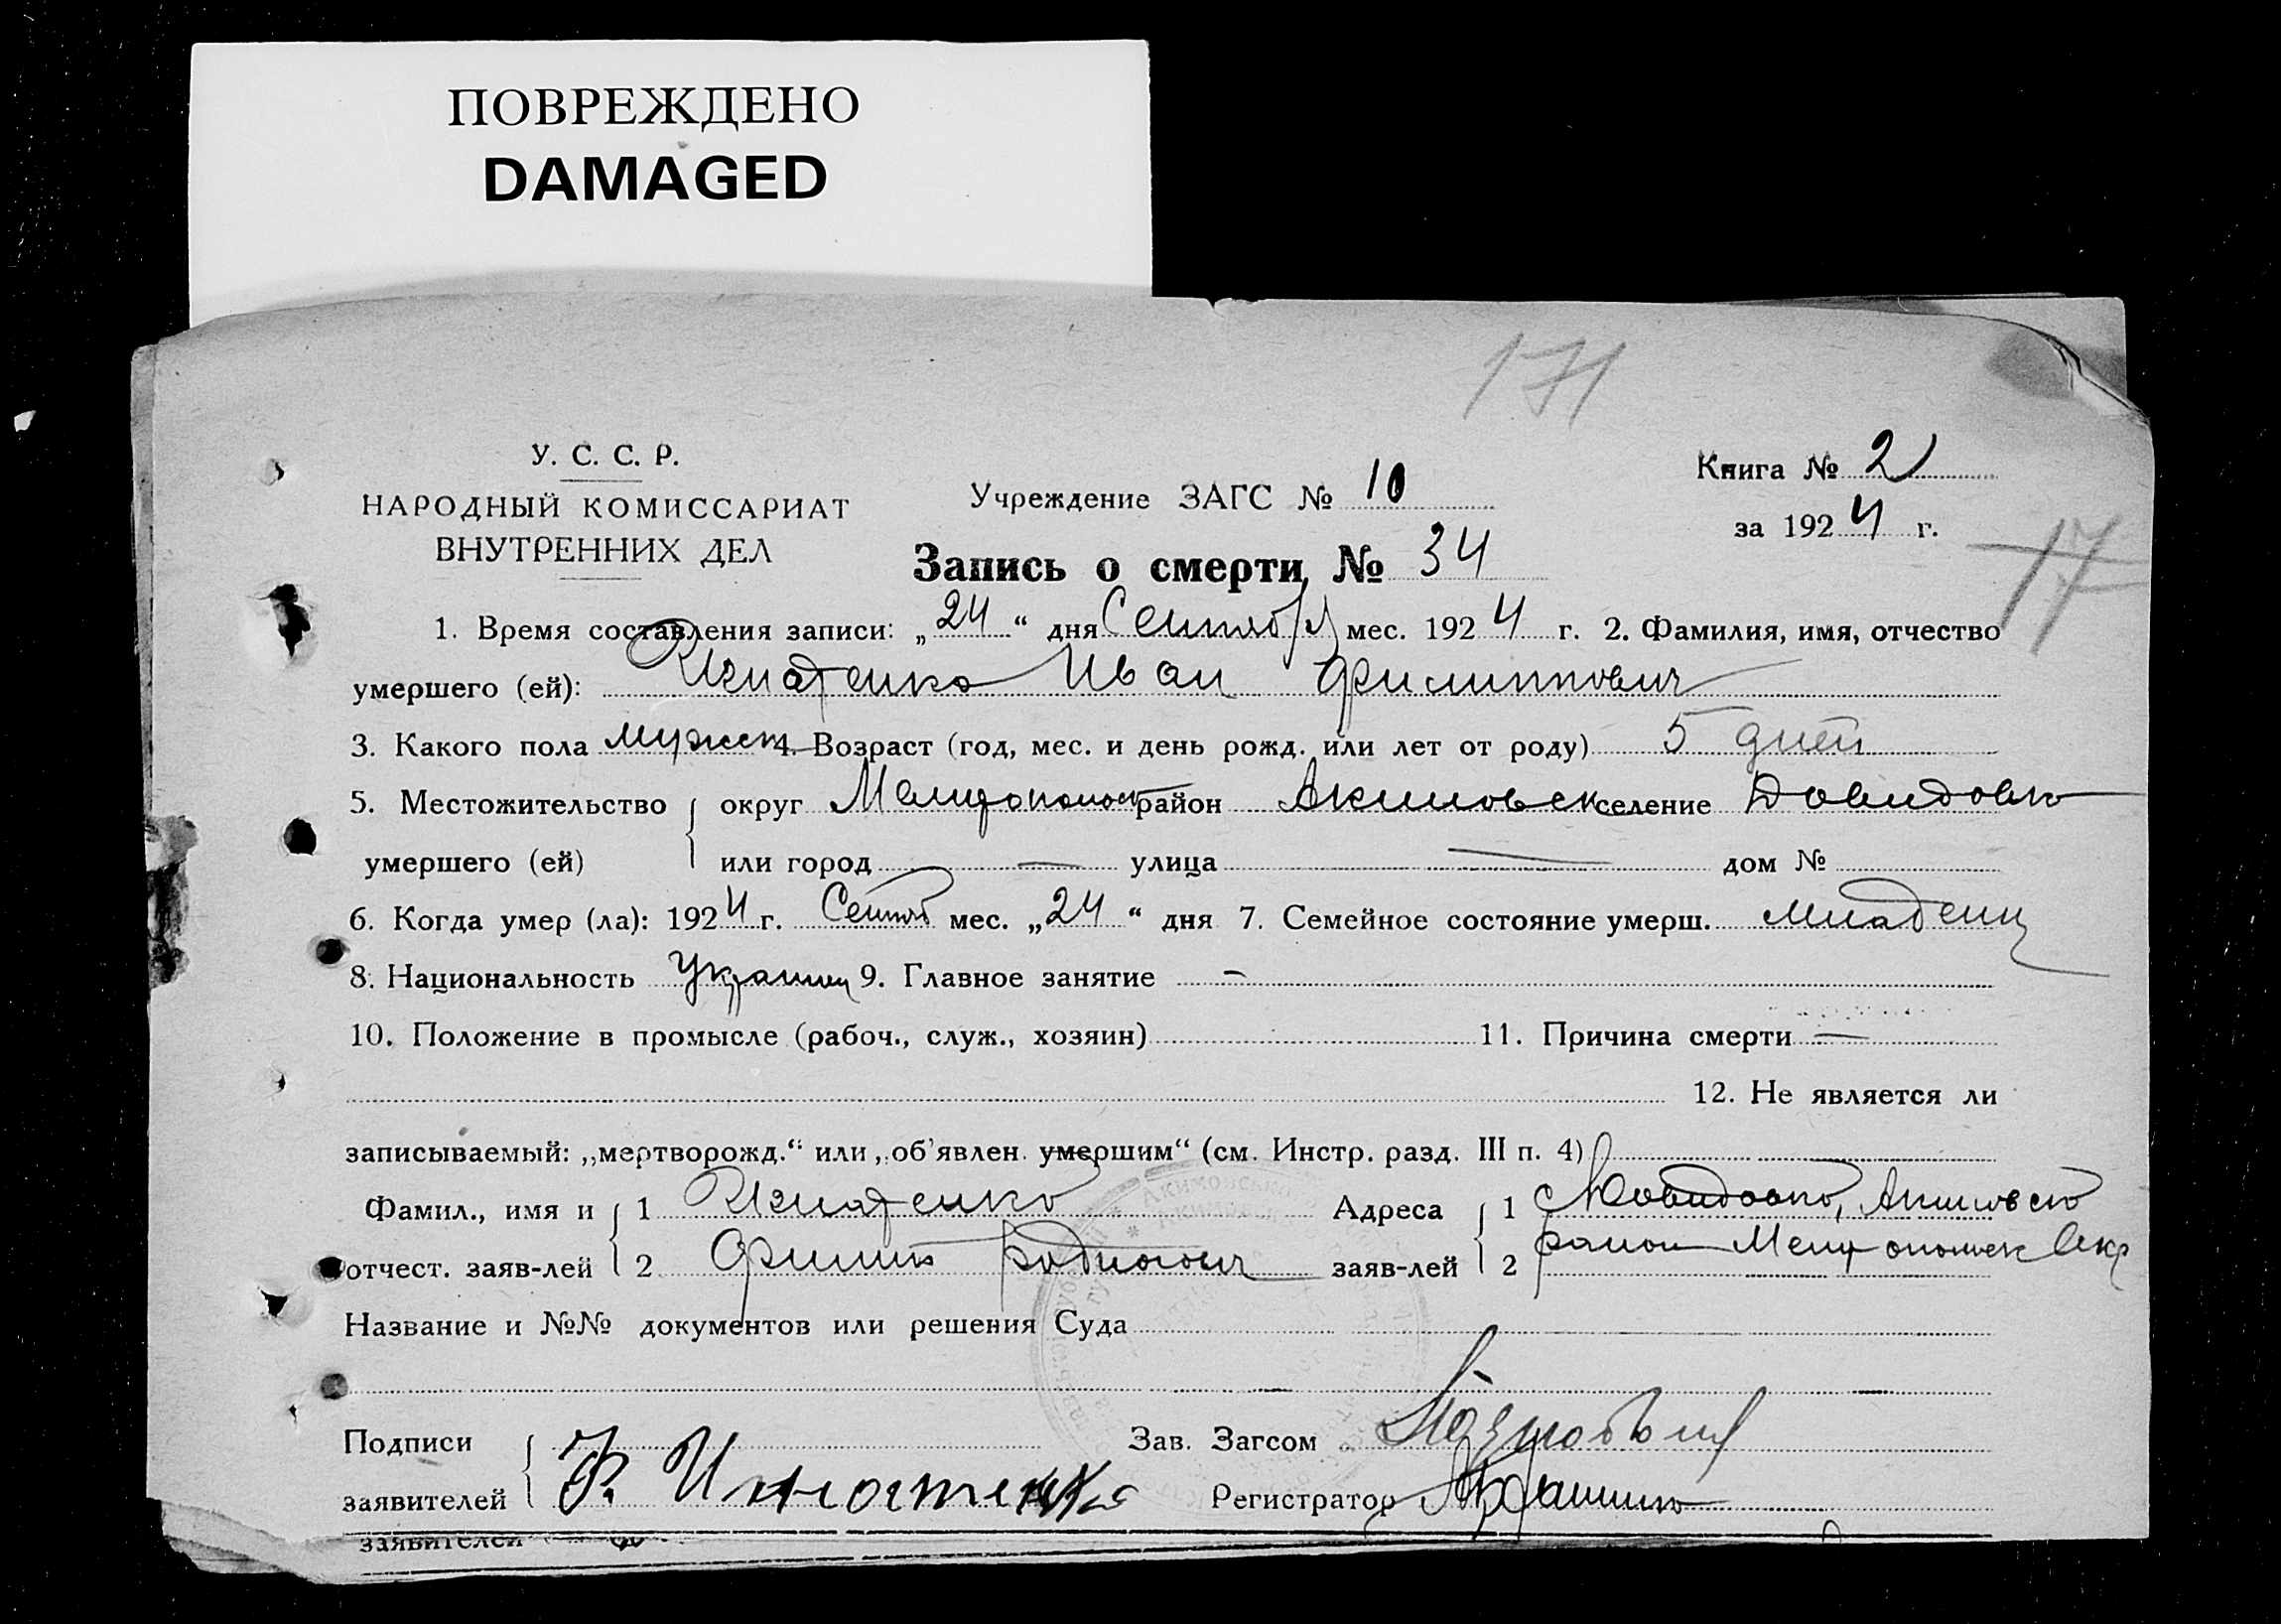 ПОВРЕЖДЕНО
DAMAGED
171
У. С. С. Р.
НАРОДНЫЙ КОМИССАРИАТ
ВНУТРЕННИХ ДЕЛ
Учреждение ЗАГС № 10
Книга № 2
за 1924 г.
17
Запись о смерти № 34
1. Время составления записи: „24“ дня Сентября мес. 1924 г. 2. Фамилия, имя, отчество
умершего (ей): Игнатенко Иван Филиппович
3. Какого пола мужск 4. Возраст (год, мес. и день рожд. или лет от роду) 5 дней
5. Местожительство округ Мелитопольск район Акимовск селение Довидовко
умершего (ей) или город — улица — дом №
6. Когда умер (ла): 1924 г. Сентяб мес. „24“ дня 7. Семейное состояние умерш. младенц
8. Национальность Украинец 9. Главное занятие –
10. Положение в промысле (рабоч., служ., хозяин) 11. Причина смерти —
12. Не является ли
записываемый: „мертворожд.“ или „об'явлен умершим“ (см. Инстр. разд. III п. 4)
Фамил., имя и 1 Игнатенко Адреса 1 Довидовко, Акимовско
отчест. заяв-лей 2 Филипп Родионович заяв-лей 2 район Мелитопольск Окр
Название и №№ документов или решения Суда
Подписи Зав. Загсом
заявителей Ф. Игнатенко Регистратор
заявителей